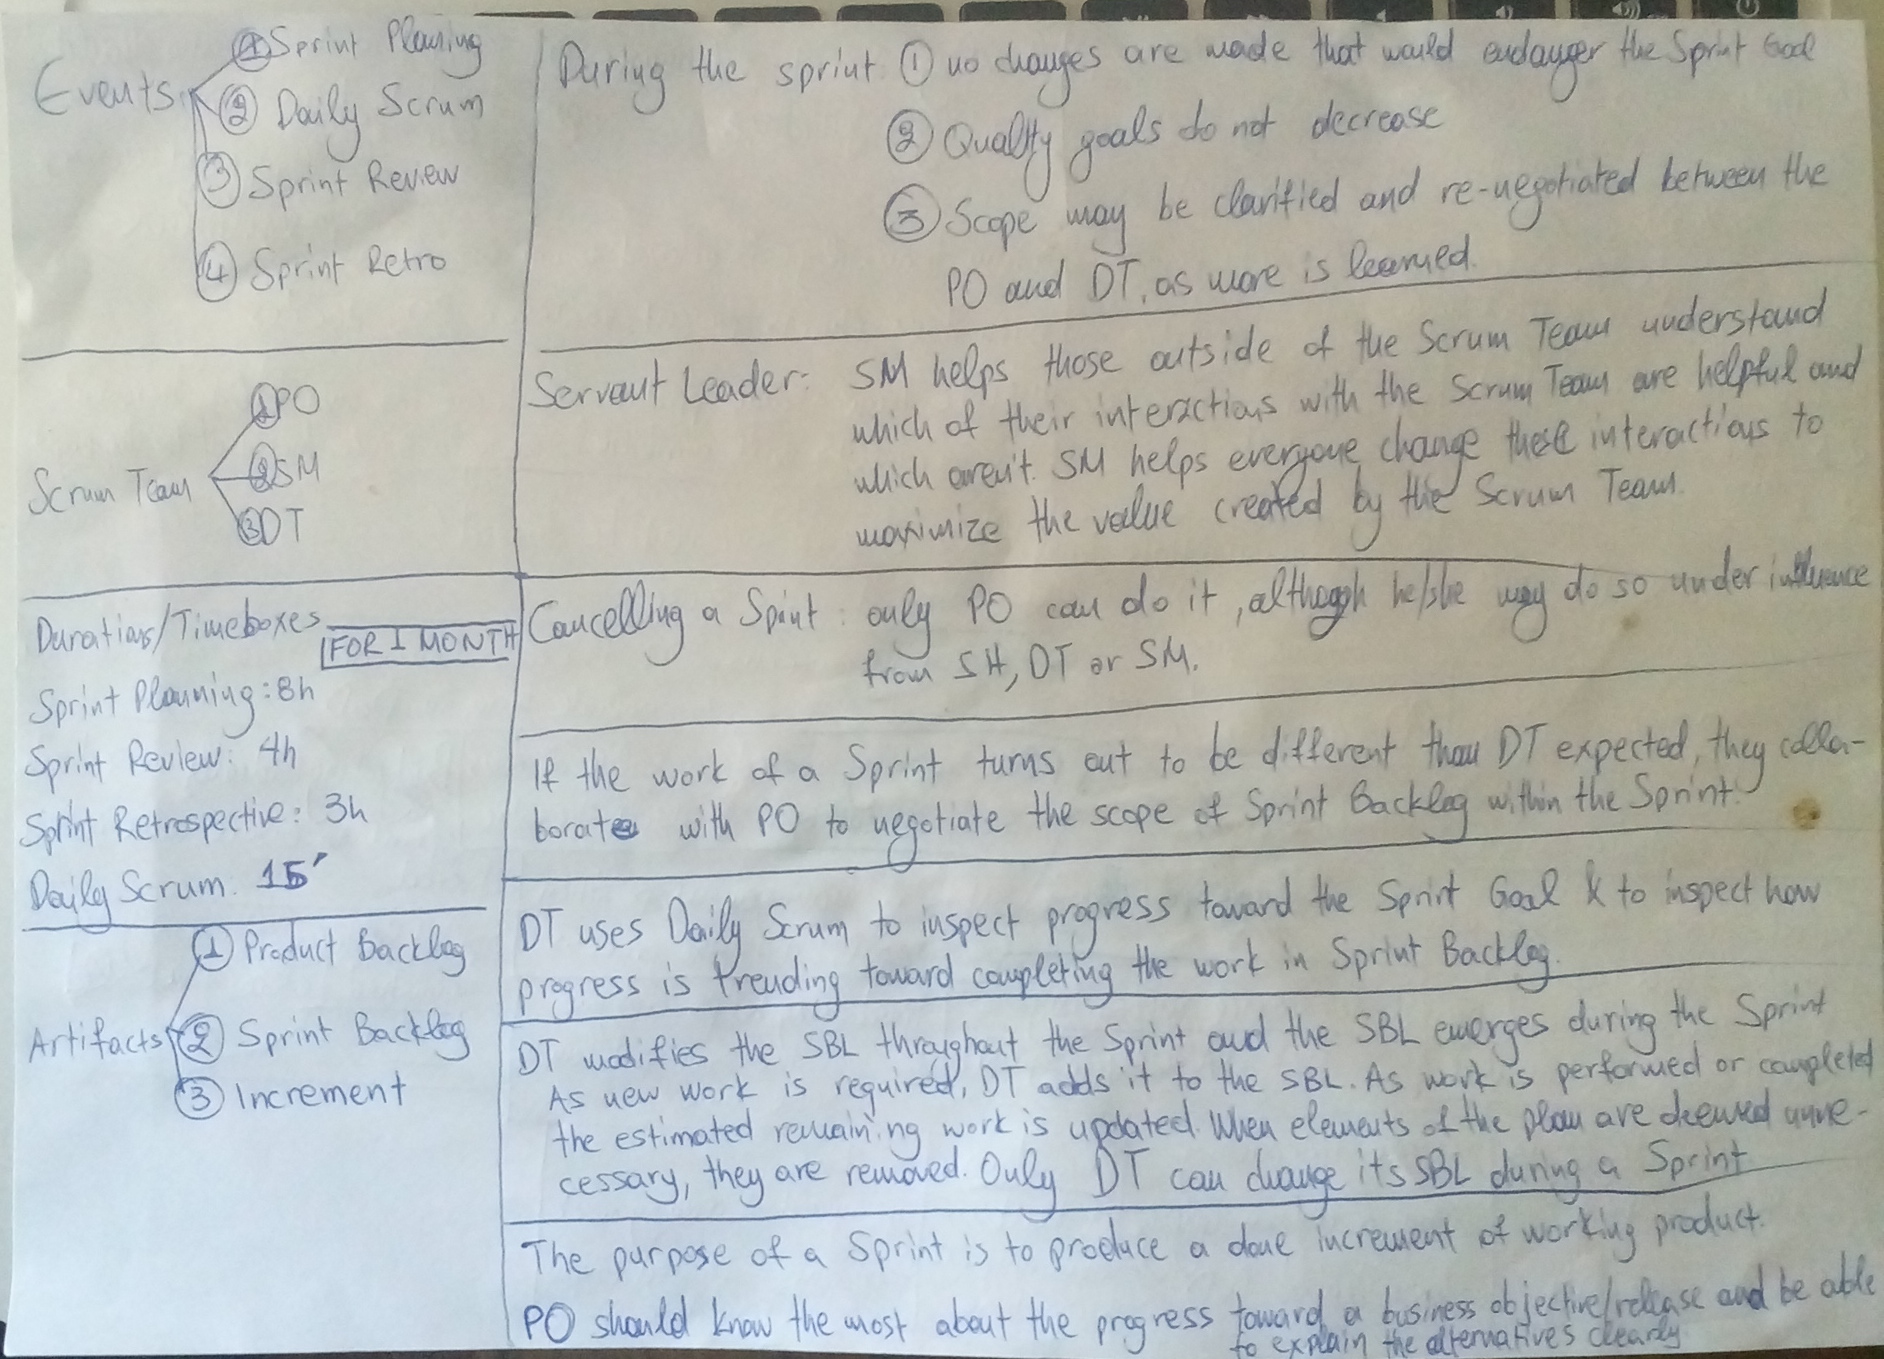 Events
① Sprint Planing
② Daily Scrum
③ Sprint Review
④ Sprint Retro
Scrum Team
① PO
② SM
③ DT
Durations/Timeboxes
FOR 1 MONTH
Sprint Planning: 8h
Sprint Review: 4h
Sprint Retrospective: 3h
Daily Scrum: 15'
Artifacts
① Product Backlog
② Sprint Backlog
③ Increment
During the sprint ① no changes are made that would endanger the Sprint Goal
② Quality goals do not decrease
③ Scope may be clarified and re-negotiated between the
PO and DT, as more is learned.
Servant Leader: SM helps those outside of the Scrum Team understand
which of their interactions with the Scrum Team are helpful and
which aren't. SM helps everyone change these interactions to
maximize the value created by the Scrum Team.
Cancelling a Sprint: only PO can do it, although he/she may do so under influence
from SH, DT or SM.
If the work of a Sprint turns out to be different than DT expected, they colla-
borate with PO to negotiate the scope of Sprint Backlog within the Sprint.
DT uses Daily Scrum to inspect progress toward the Sprint Goal & to inspect how
progress is trending toward completing the work in Sprint Backlog.
DT modifies the SBL throughout the Sprint and the SBL emerges during the Sprint
As new work is required, DT adds it to the SBL. As work is performed or completed
the estimated remaining work is updated. When elements of the plan are deemed unne-
cessary, they are removed. Only DT can change its SBL during a Sprint
The purpose of a Sprint is to produce a done increment of working product.
PO should know the most about the progress toward a business objective/release and be able
to explain the alternatives clearly